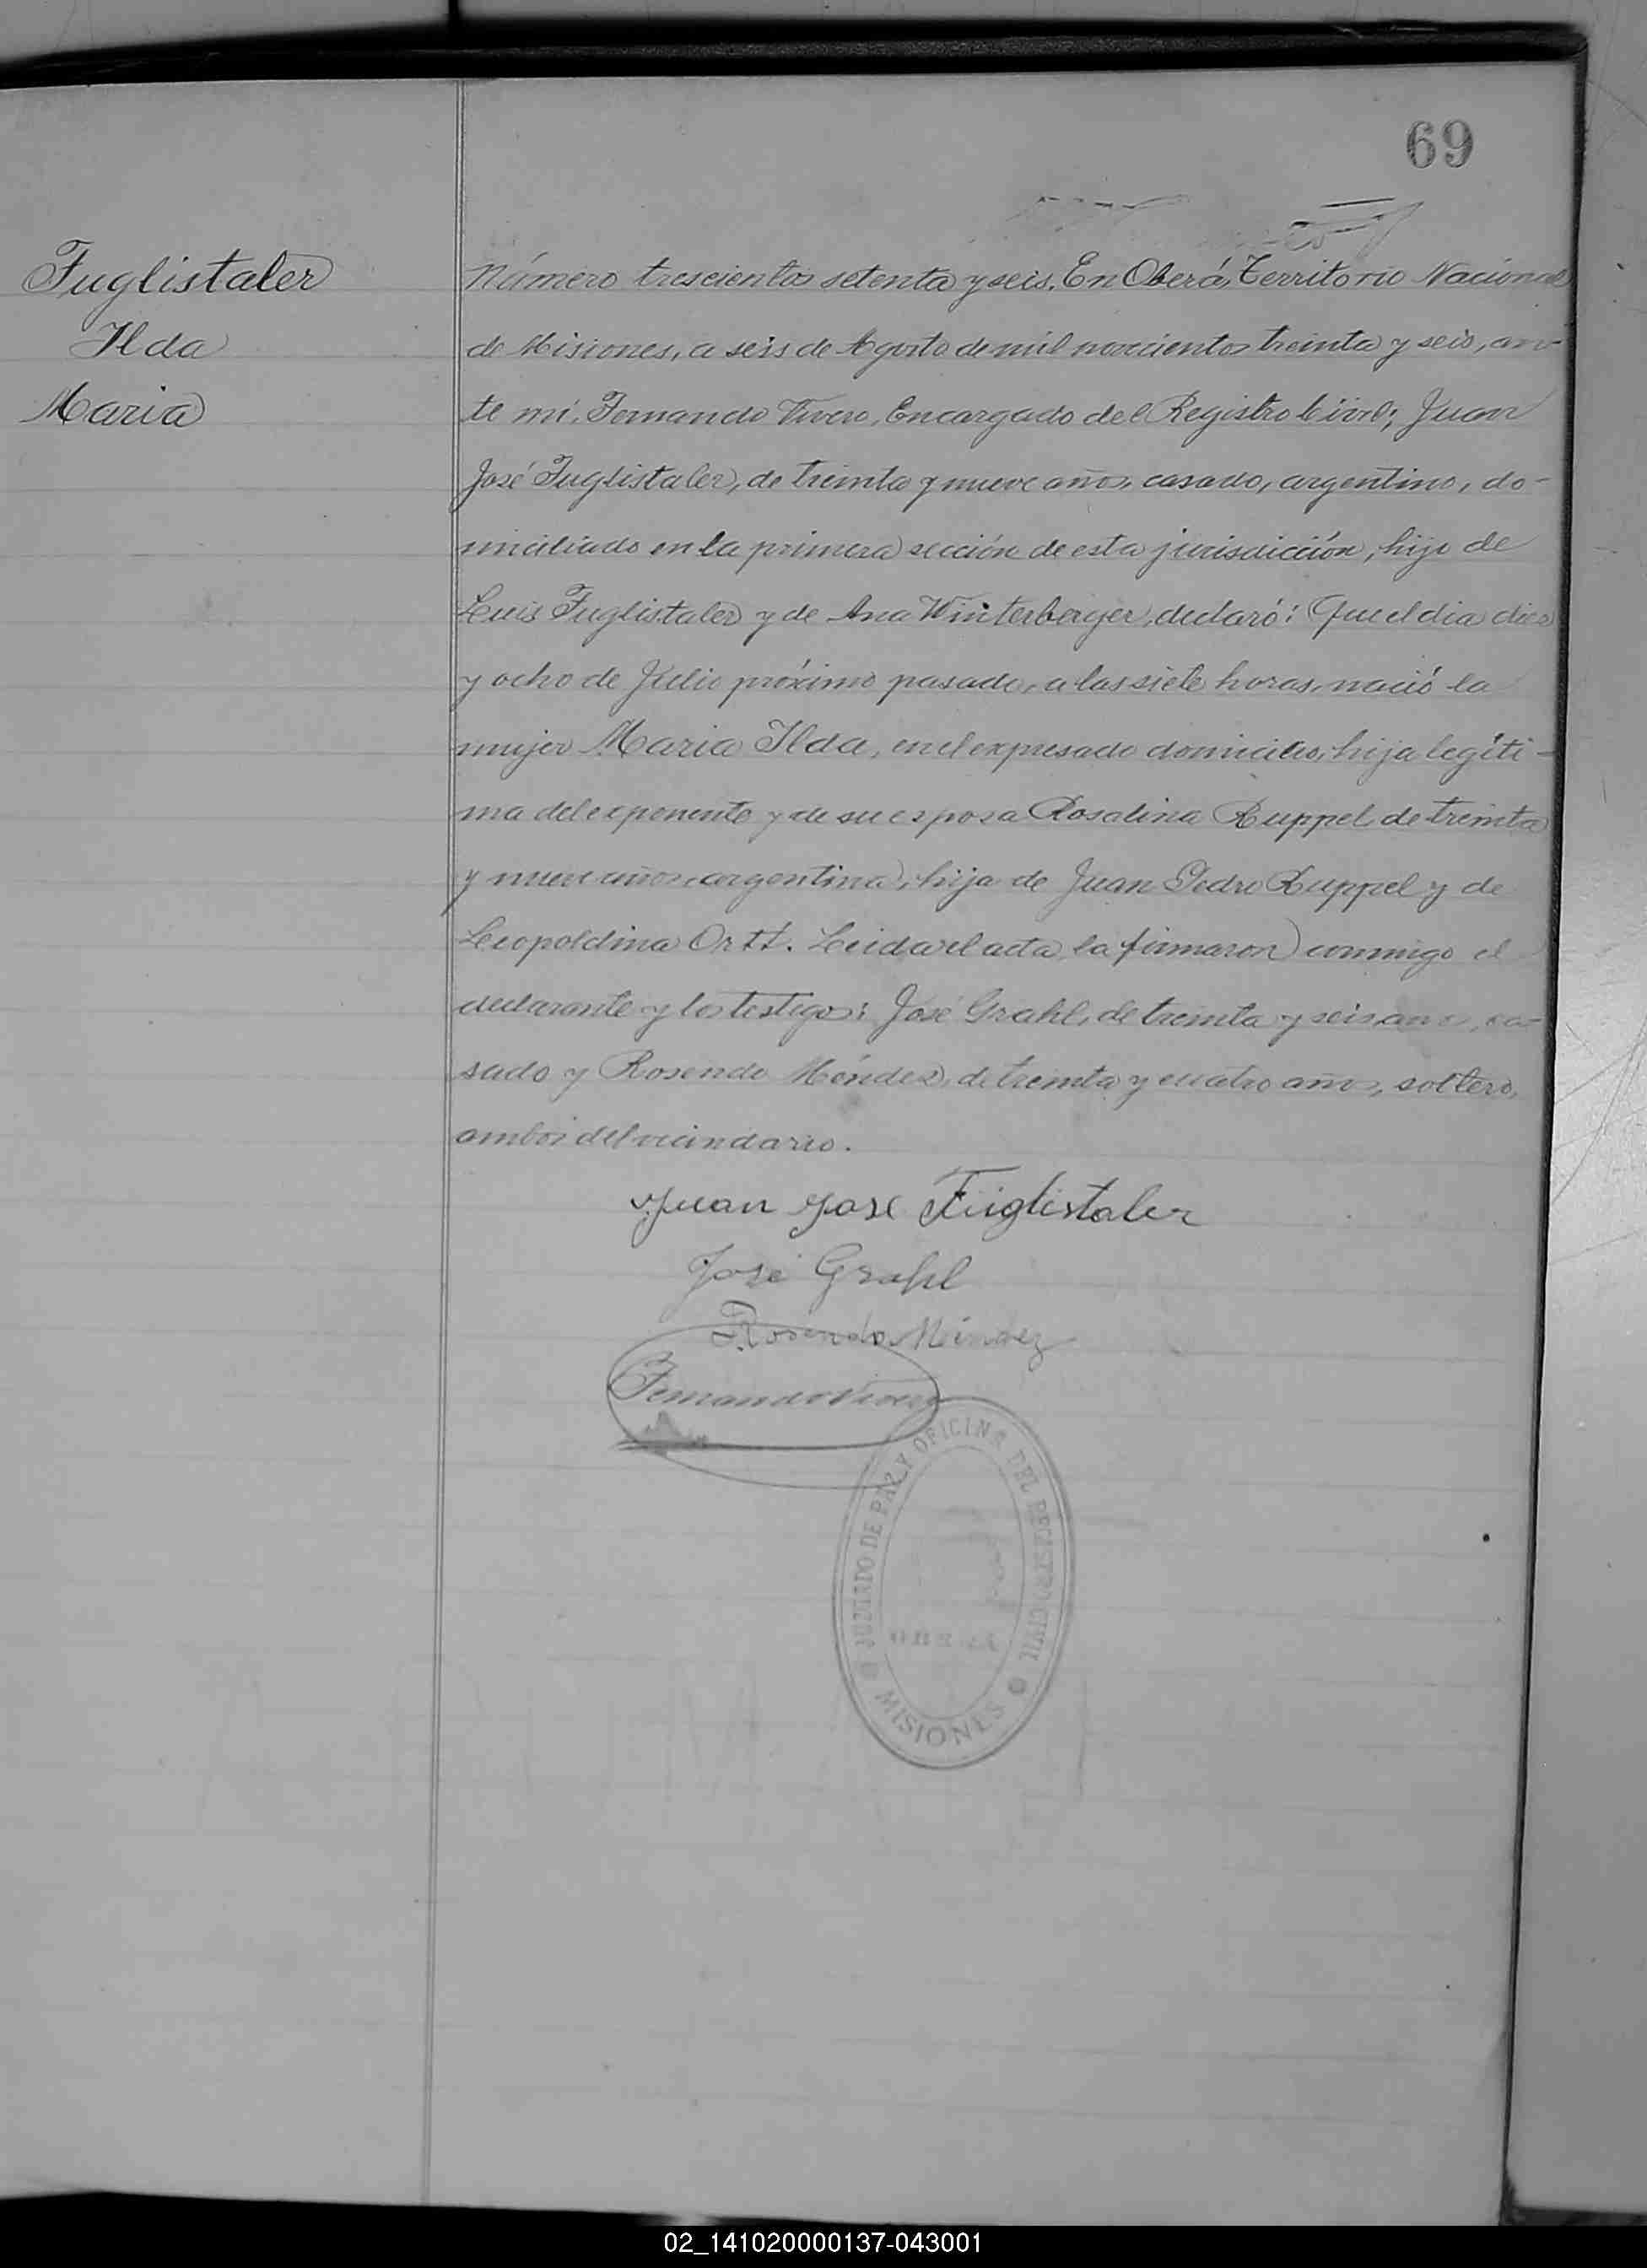 69
Fuglistaler
Ilda
Maria
Número trescientos setenta y seis. En Oberá, Territorio Nacional
de Misiones, a seis de Agosto de mil novecientos treinta y seis, an-
te mí, Fernando Vivero, Encargado del Registro Civil; Juan
José Fuglistaler, de treinta y nueve años, casado, argentino, do-
miciliado en la primera sección de esta jurisdicción, hijo de
Luis Fuglistaler y de Ana Winterberger, declaró: Que el dia diez
y ocho de Julio próximo pasado, a las siete horas, nació la
mujer Maria Ilda, en el expresado domicilio, hija legíti-
ma del exponente y de su esposa Rosalina Ruppel de treinta
y nueve años, argentina, hija de Juan Pedro Ruppel y de
Leopoldina Ortt. Leida el acta, la firmaron conmigo el
declarante y los testigos: José Grahl, de treinta y seis años, ca-
sado y Rosendo Méndez, de treinta y cuatro años, soltero,
ambos del vecindario.
Juan Jose Füglistaler
José Grahl
Rosendo Méndez
Fernando Vivero
JUZGADO DE PAZ Y OFICINA DEL REGISTRO CIVIL
MISIONES
02_141020000137-043001